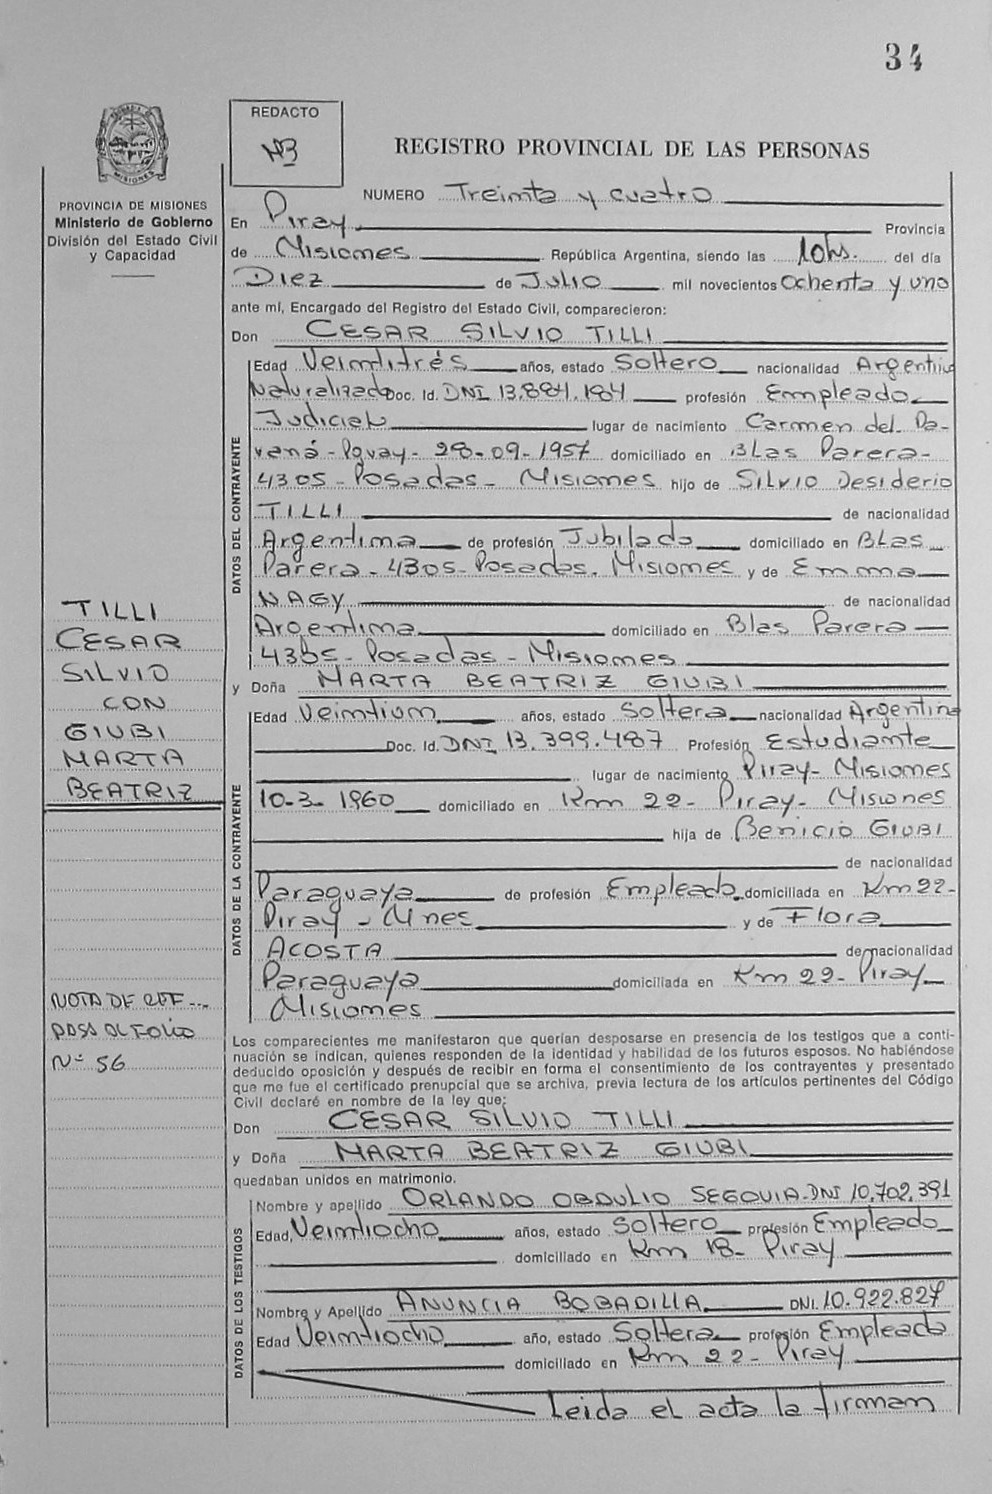 34
MISIONES
REDACTO
REGISTRO PROVINCIAL DE LAS PERSONAS
PROVINCIA DE MISIONES
Ministerio de Gobierno
División del Estado Civil
y Capacidad
NUMERO Treinta y cuatro
En Piray Provincia
de Misiones República Argentina, siendo las 10hs. del día
Diez de Julio mil novecientos ochenta y uno
ante mí, Encargado del Registro del Estado Civil, comparecieron:
Don CESAR SILVIO TILLI
DATOS DEL CONTRAYENTE
Edad Veintitrés años, estado Soltero nacionalidad Argentina
Naturalizado Doc. Id. DNI 13.884.184 profesión Empleado
Judicial lugar de nacimiento Carmen del Pa-
raná - Pguay - 28-09-1957 domiciliado en Blas Parera-
4305 - Posadas - Misiones hijo de Silvio Desiderio
TILLI de nacionalidad
Argentina de profesión Jubilado domiciliado en Blas
Parera - 4305 - Posadas - Misiones y de Emma
NAGY de nacionalidad
Argentina domiciliado en Blas Parera
4305 - Posadas - Misiones
y Doña MARTA BEATRIZ GIUBI
DATOS DE LA CONTRAYENTE
Edad Veintiun años, estado Soltera nacionalidad Argentina
Doc. Id. DNI 13.399.487 Profesión Estudiante
lugar de nacimiento Piray - Misiones
10-3-1960 domiciliado en Km 22 - Piray - Misiones
hija de Benicio GIUBI
de nacionalidad
Paraguaya de profesión Empleado domiciliada en Km 22-
Piray - Mnes y de Flora
ACOSTA de nacionalidad
Paraguaya domiciliada en Km 22 - Piray
Misiones
TILLI
CESAR
SILVIO
CON
GIUBI
MARTA
BEATRIZ
NOTA DE REF...
PASA AL FOLIO
Nº 56
Los comparecientes me manifestaron que querían desposarse en presencia de los testigos que a conti-
nuación se indican, quienes responden de la identidad y habilidad de los futuros esposos. No habiéndose
deducido oposición y después de recibir en forma el consentimiento de los contrayentes y presentado
que me fue el certificado prenupcial que se archiva, previa lectura de los artículos pertinentes del Código
Civil declaré en nombre de la ley que:
Don CESAR SILVIO TILLI
y Doña MARTA BEATRIZ GIUBI
quedaban unidos en matrimonio.
DATOS DE LOS TESTIGOS
Nombre y apellido ORLANDO OBDULIO SEGOVIA - DNI 10,702,391
Edad Veintiocho años, estado Soltero profesión Empleado
domiciliado en Km 18 - Piray
Nombre y Apellido ANUNCIA BOBADILLA DNI. 10.922.827
Edad Veintiocho año, estado Soltera profesión Empleada
domiciliado en Km 22 - Piray
Leida el acta la firman